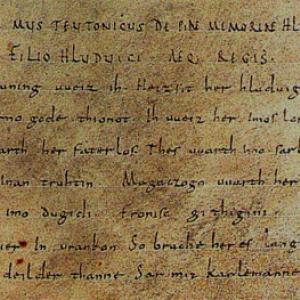 MUS TEUTONICUS DE PIAE MEMORIAE HL
FILIO HLUDUICI AEQ; REGIS.
uning uueiz ih. Heizsit her hluduig
mo gode thionot. Ih uueiz her imos lon
arth her faterlos. Thes uuarth imo sar
inan truhtin. Magaczogo uuarth her
imo dugidi. Fronisc githigini.
ier In urankon. So bruche her es lang
deilder thanne. Sar mit Karlemanne